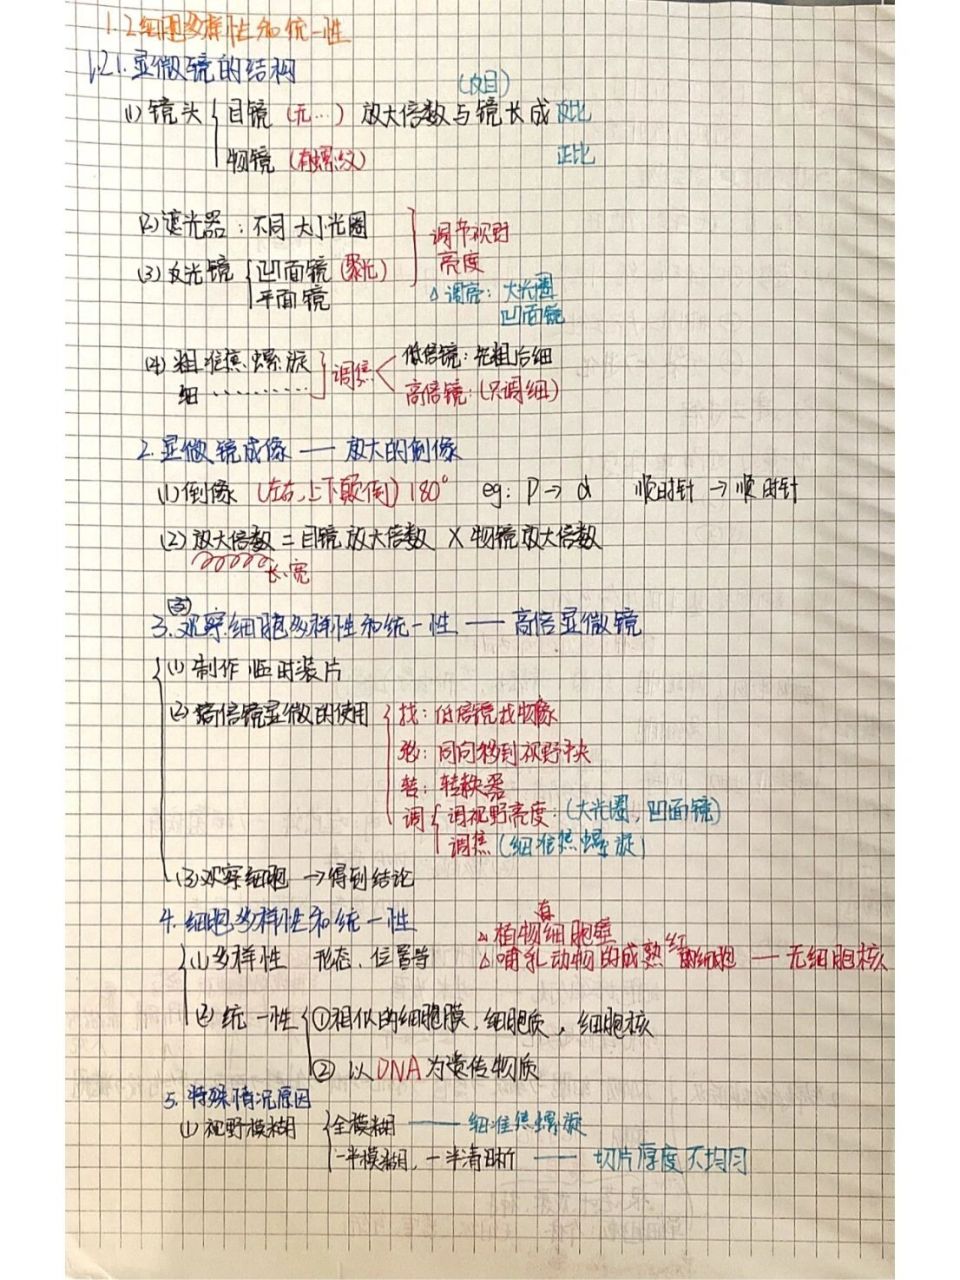 1.2细胞多样性和统一性
1.2.1.显微镜的结构
(反目)
(1)镜头 目镜(无…) 放大倍数与镜长成 反比
物镜(有螺纹) 正比
(2)遮光器:不同大小光圈
调节视野
亮度
(3)反光镜 凹面镜(聚光)
平面镜
△调亮:大光圈
凹面镜
(4)粗准焦螺旋 调焦 低倍镜:先粗后细
细………… 高倍镜:(只调细)
2.显微镜成像——放大的倒像
(1)倒像(左右,上下颠倒)180° eg: p→d 顺时针→顺时针
(2)放大倍数=目镜放大倍数×物镜放大倍数
长、宽
3.观察细胞多样性和统一性——高倍显微镜
(1)制作临时装片
(2)高倍镜显微的使用 找:低倍镜找物像
移:同向移到视野中央
转:转换器
调 调视野亮度:(大光圈,凹面镜)
调焦(细准焦螺旋)
(3)观察细胞→得到结论
4.细胞多样性和统一性
△植物细胞壁
(1)多样性 形态、位置等
△哺乳动物的成熟红的细胞——无细胞核
(2)统一性 ①相似的细胞膜,细胞质,细胞核
②以DNA为遗传物质
5.特殊情况原因
(1)视野模糊 全模糊——细准焦螺旋
一半模糊,一半清晰——切片厚度不均匀